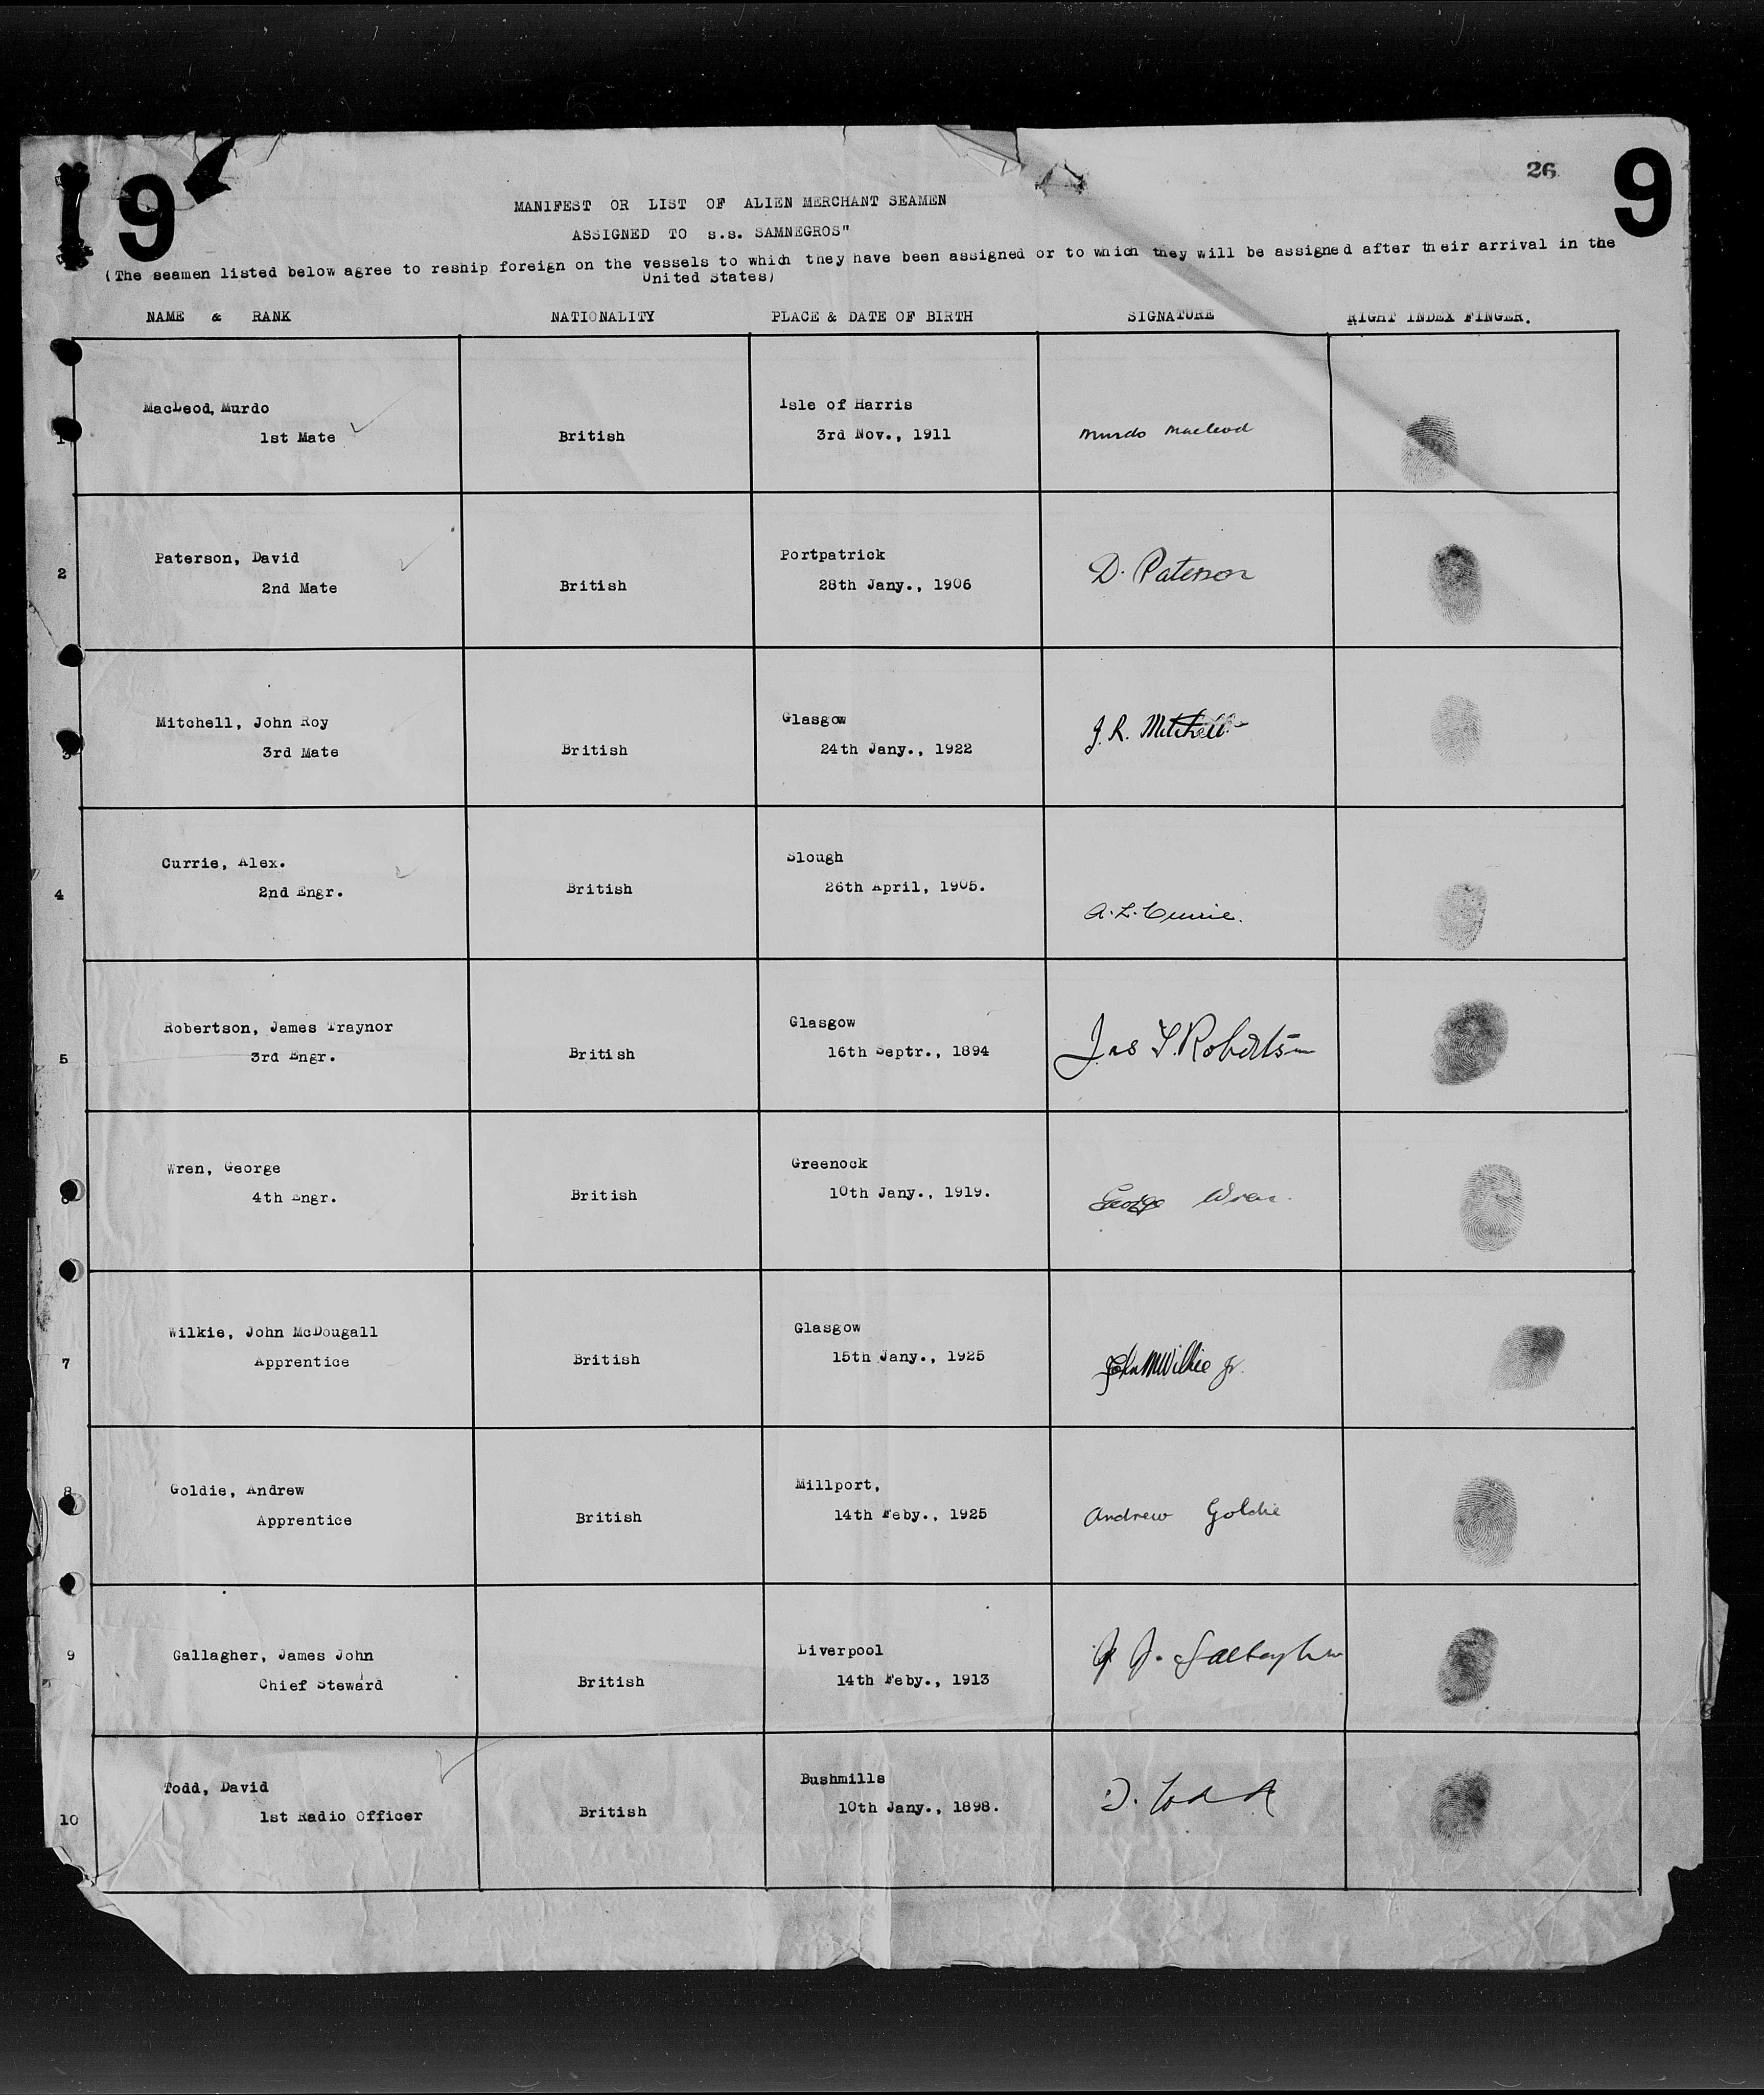 9
26
9
MANIFEST OR LIST OF ALIEN MERCHANT SEAMEN
ASSIGNED TO s.s. SAMNEGROS"
(The seamen listed below agree to reship foreign on the vessels to which they have been assigned or to which they will be assigned after their arrival in the
United States)
NAME & RANK NATIONALITY PLACE & DATE OF BIRTH SIGNATURE RIGHT INDEX FINGER.
MacLeod, Murdo Isle of Harris
1 1st Mate British 3rd Nov., 1911 Murdo Macleod
Paterson, David Portpatrick
2 2nd Mate British 28th Jany., 1906 D. Paterson
Mitchell, John Roy Glasgow
3 3rd Mate British 24th Jany., 1922 J. R. Mitchell
Currie, Alex. Slough
4 2nd Engr. British 26th April, 1905. A. L. Currie.
Robertson, James Traynor Glasgow
5 3rd Engr. British 16th Septr., 1894 Jas T. Robertson
Wren, George Greenock
6 4th Engr. British 10th Jany., 1919. George Wren.
Wilkie, John McDougall Glasgow
7 Apprentice British 15th Jany., 1925 John M Wilkie Jr.
8 Goldie, Andrew Millport,
Apprentice British 14th Feby., 1925 Andrew Goldie
9 Gallagher, James John Liverpool
Chief Steward British 14th Feby., 1913 J. J. Gallagher
Todd, David Bushmills
10 1st Radio Officer British 10th Jany., 1898. D. Todd